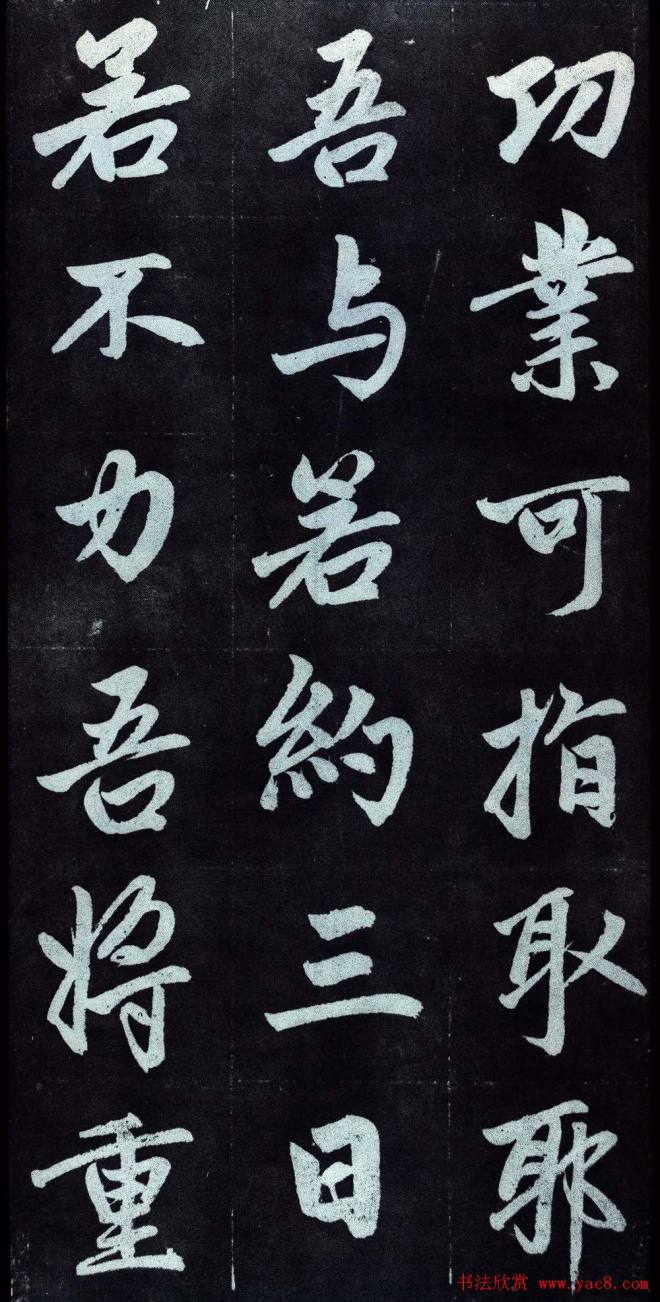 功業可指取耶
吾与若約三日
若不力吾将重
书法欣赏 www.yac8.com